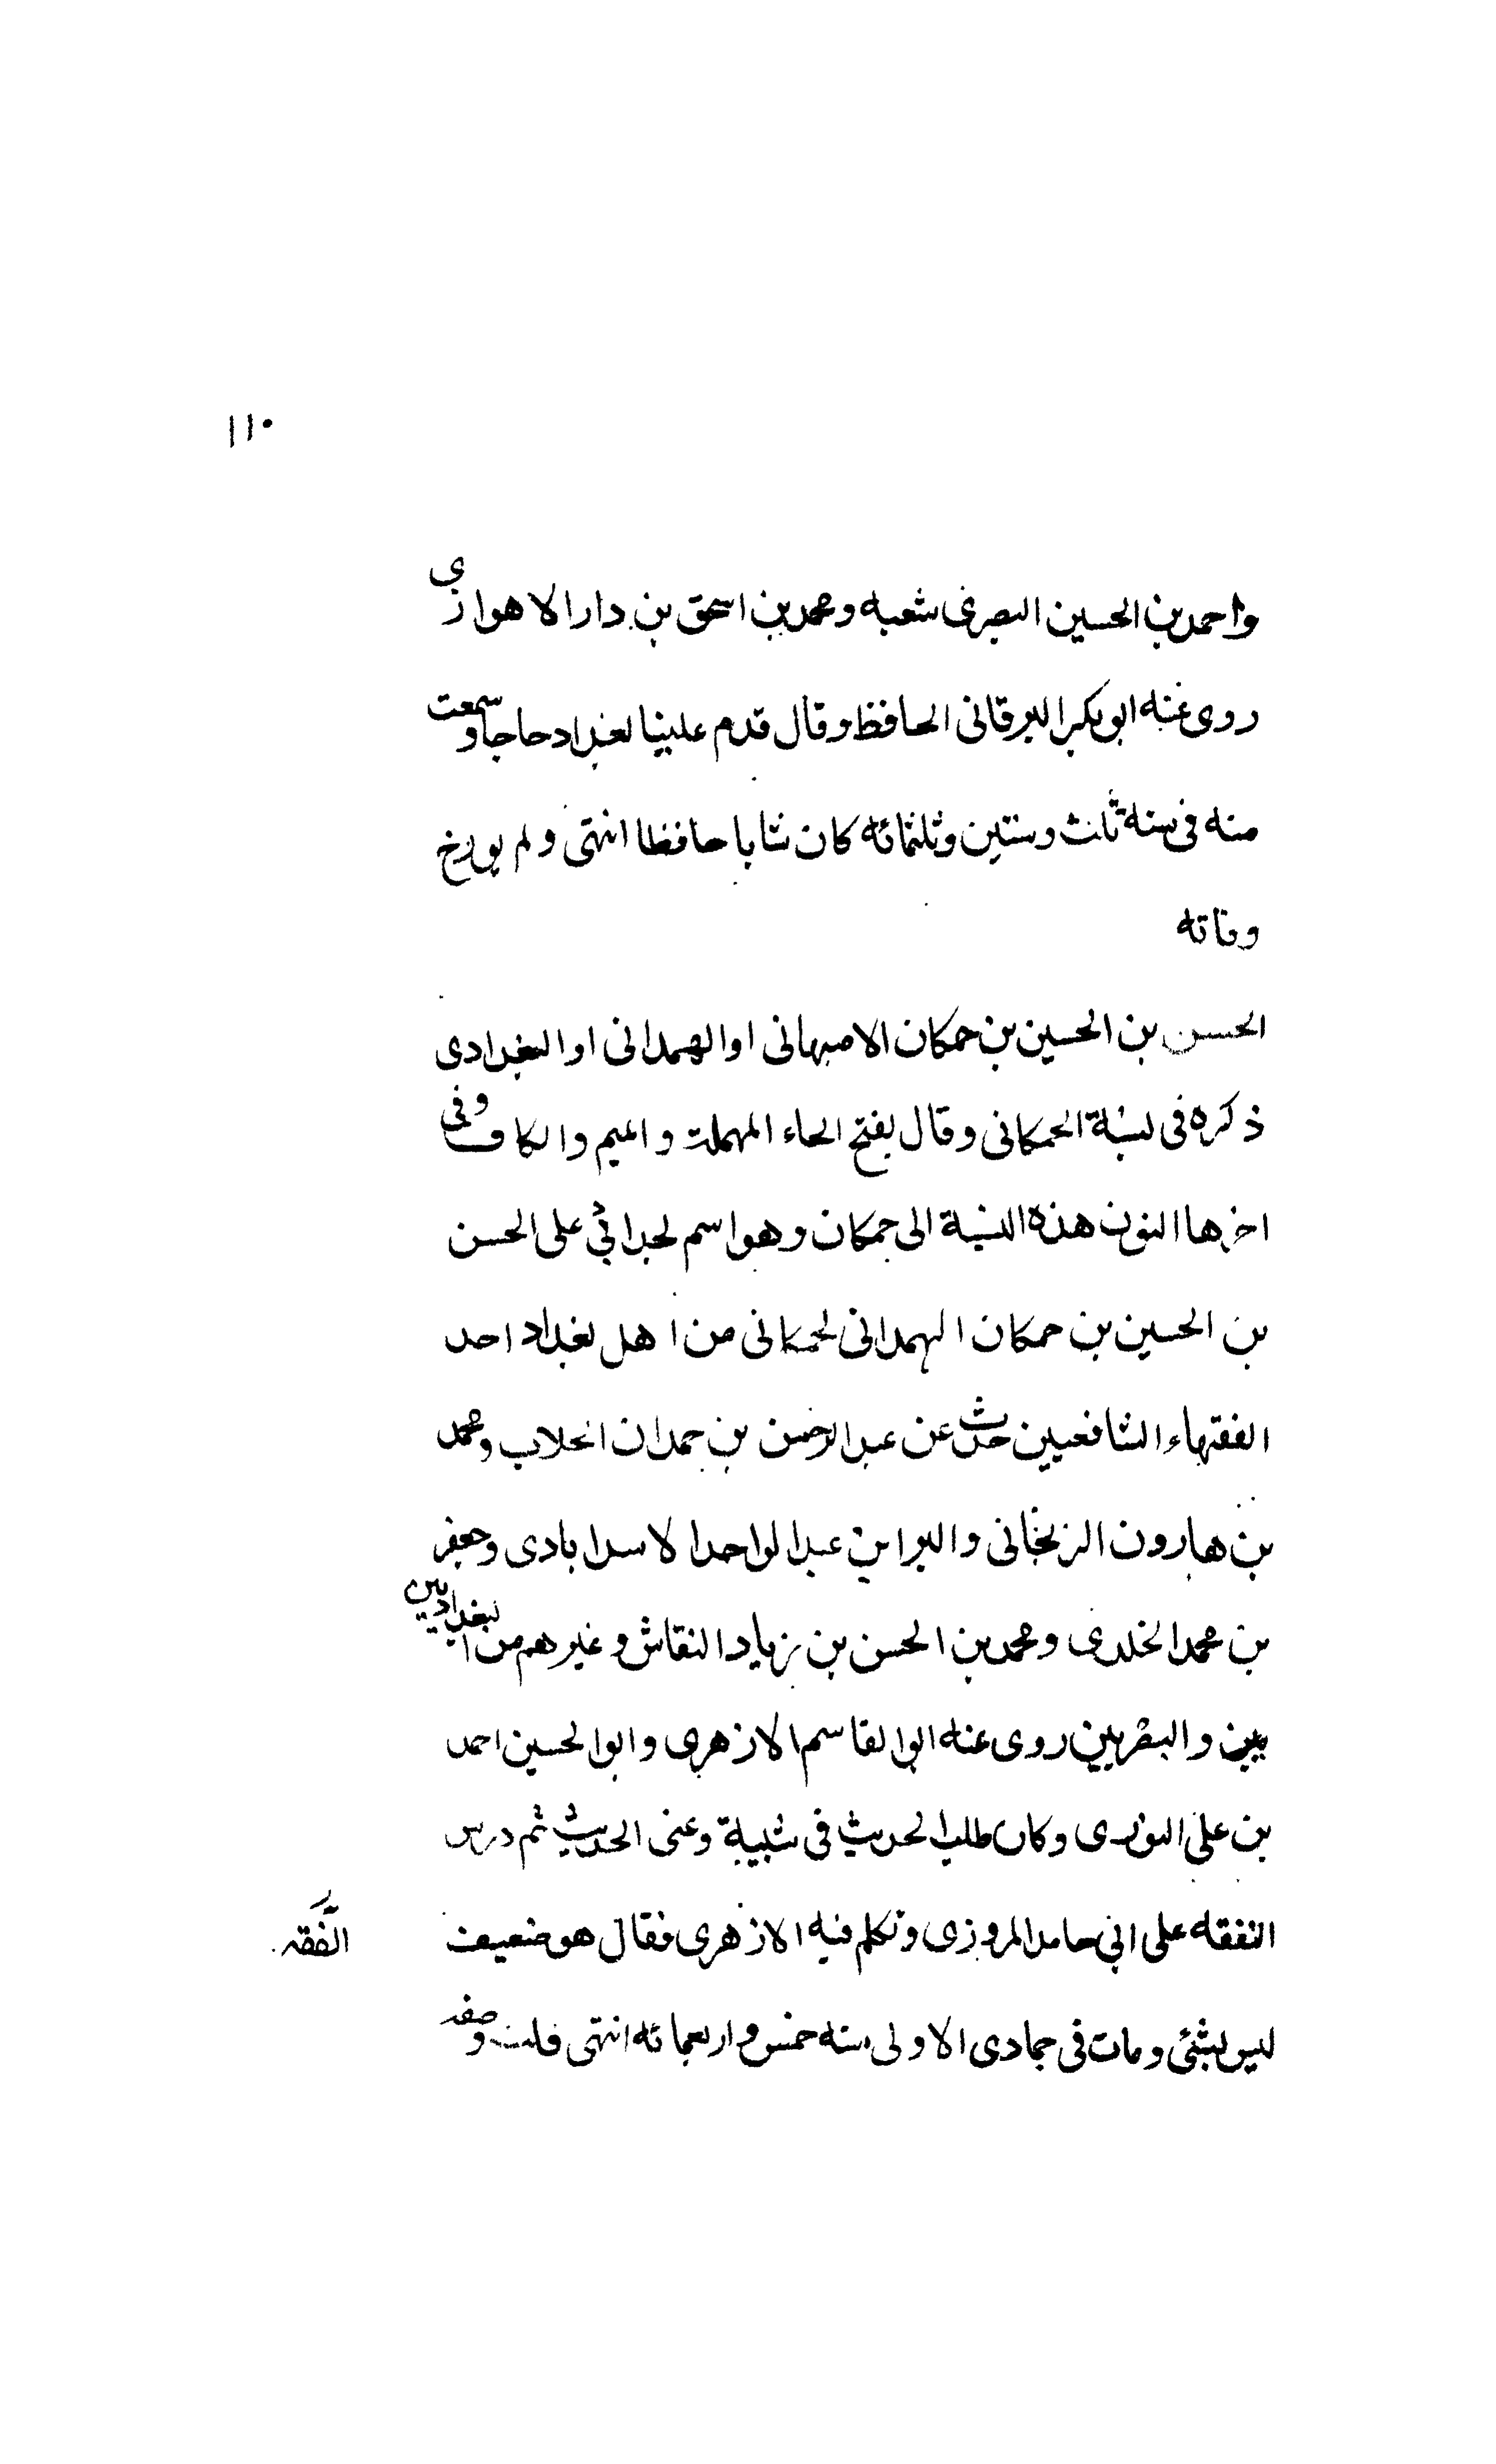 ١١٠
واحمد بن الحسين البصرى شعبه ومحمد بن اسحق بن دارا الاهوازى
روى عنه ابوبكر البرقانى الحافظ وقال قدم علينا بغداد حاجا وسمعت
منه فى سنه ثلث وستين وثلثمائه كان شابا حافظا انتهى ولم يورخ
وفاته
الحسن بن الحسين بن حمكان الاصبهانى او الهمدانى او البغدادى
ذكره فى نسبة الحمكانى وقال بفتح الحاء المهملة والميم والكاف وفى
اخرها النون هذه النسبة الى حمكان وهو اسم لجد ابي على الحسن
بن الحسين بن حمكان الهمدانى لحمكانى من اهل بغداد احد
الفقهاء الشافعيين حدث عن عبدالرحمن بن حمدان الجلاب ومحمد
بن هارون الزنجانى والبر ابن عبد الواحد الاسدابادى وجعفر
بن محمد الخلدى ومحمد بن الحسن بن زياد النقاش وغيرهم من البغداديين
يين والبصريين روى عنه ابوالقاسم الازهرى وابوالحسين احمد
بن على التوزى وكان طلب الحديث فى شبيبة وعنى الحديث ثم درس
الفقه على ابى حامد المروزى وتكلم فيه الازهرى فقال هو ضعيف
الفقه
ليس بشئى ومات فى جمادى الاولى سنه خمس واربعمائه انتهى قلت وصفه